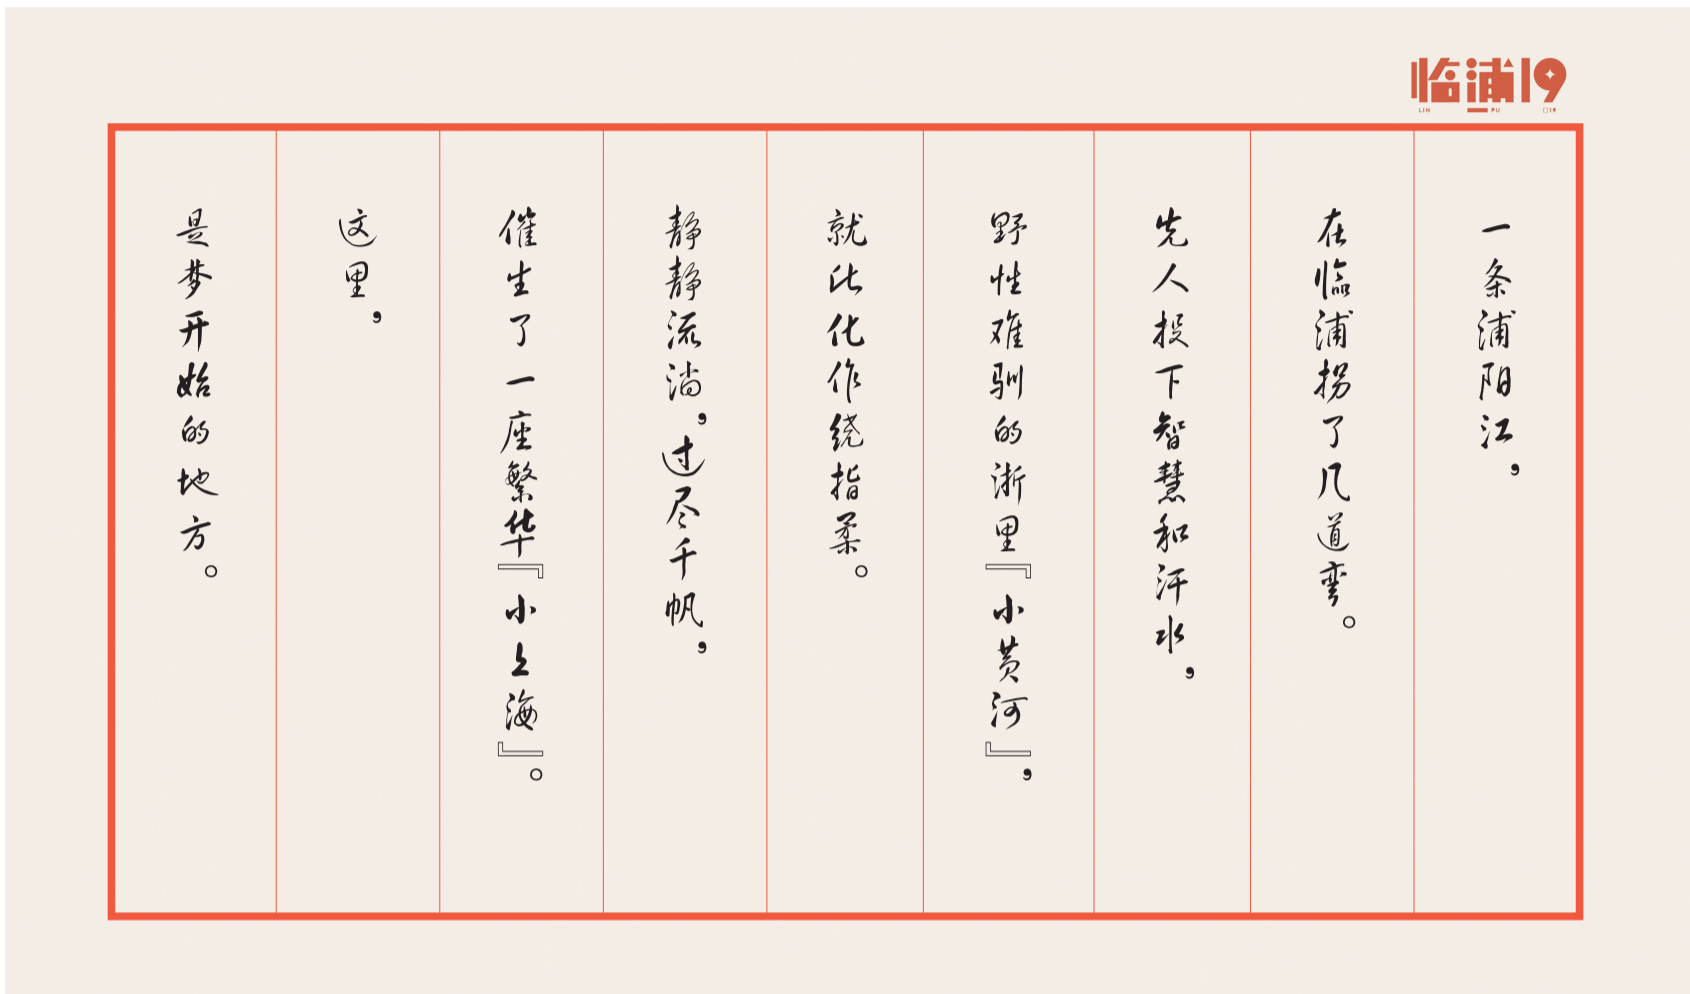 临浦19
LIN PU 19
一条浦阳江，
在临浦拐了几道弯。
先人投下智慧和汗水，
野性难驯的浙里『小黄河』，
就此化作绕指柔。
静静流淌，过尽千帆，
催生了一座繁华『小上海』。
这里，
是梦开始的地方。